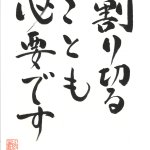 割り切る
ことも
必要です